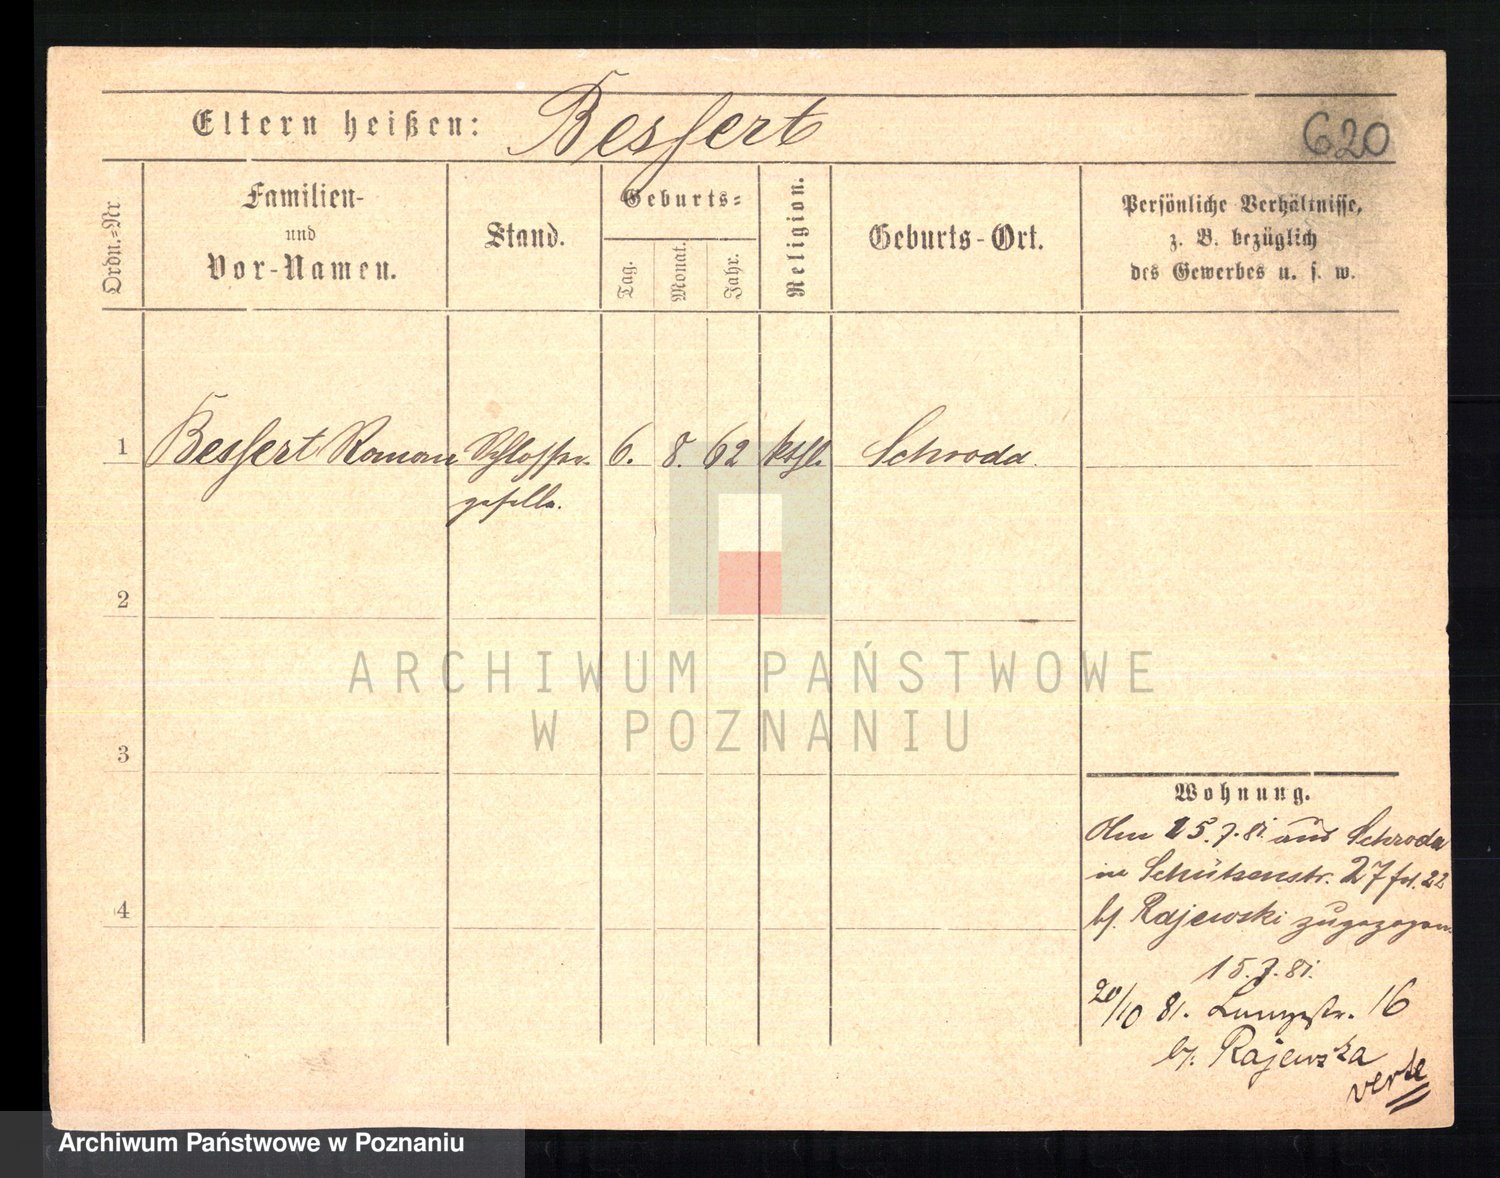 Eltern heißen: Besfert
620
Ordn.=Nr
Familien-
und
Vor-Namen.
Stand.
Geburts=
Tag.
Monat.
Jahr.
Religion.
Geburts-Ort.
Persönliche Verhältnisse,
z. B. bezüglich
des Gewerbes u. s. w.
1 Besfert Roman Schlosser- 6. 8. 62 kthl. Schroda.
geselle.
2
3
4
ARCHIWUM PAŃSTWOWE
W POZNANIU
Wohnung.
Am 15.7.81. aus Schroda
in Schützenstr. 27
bf. Rajewski zugezogen.
15.7.81.
20/10 81. Langestr. 16
bf. Rajewska
verte
Archiwum Państwowe w Poznaniu